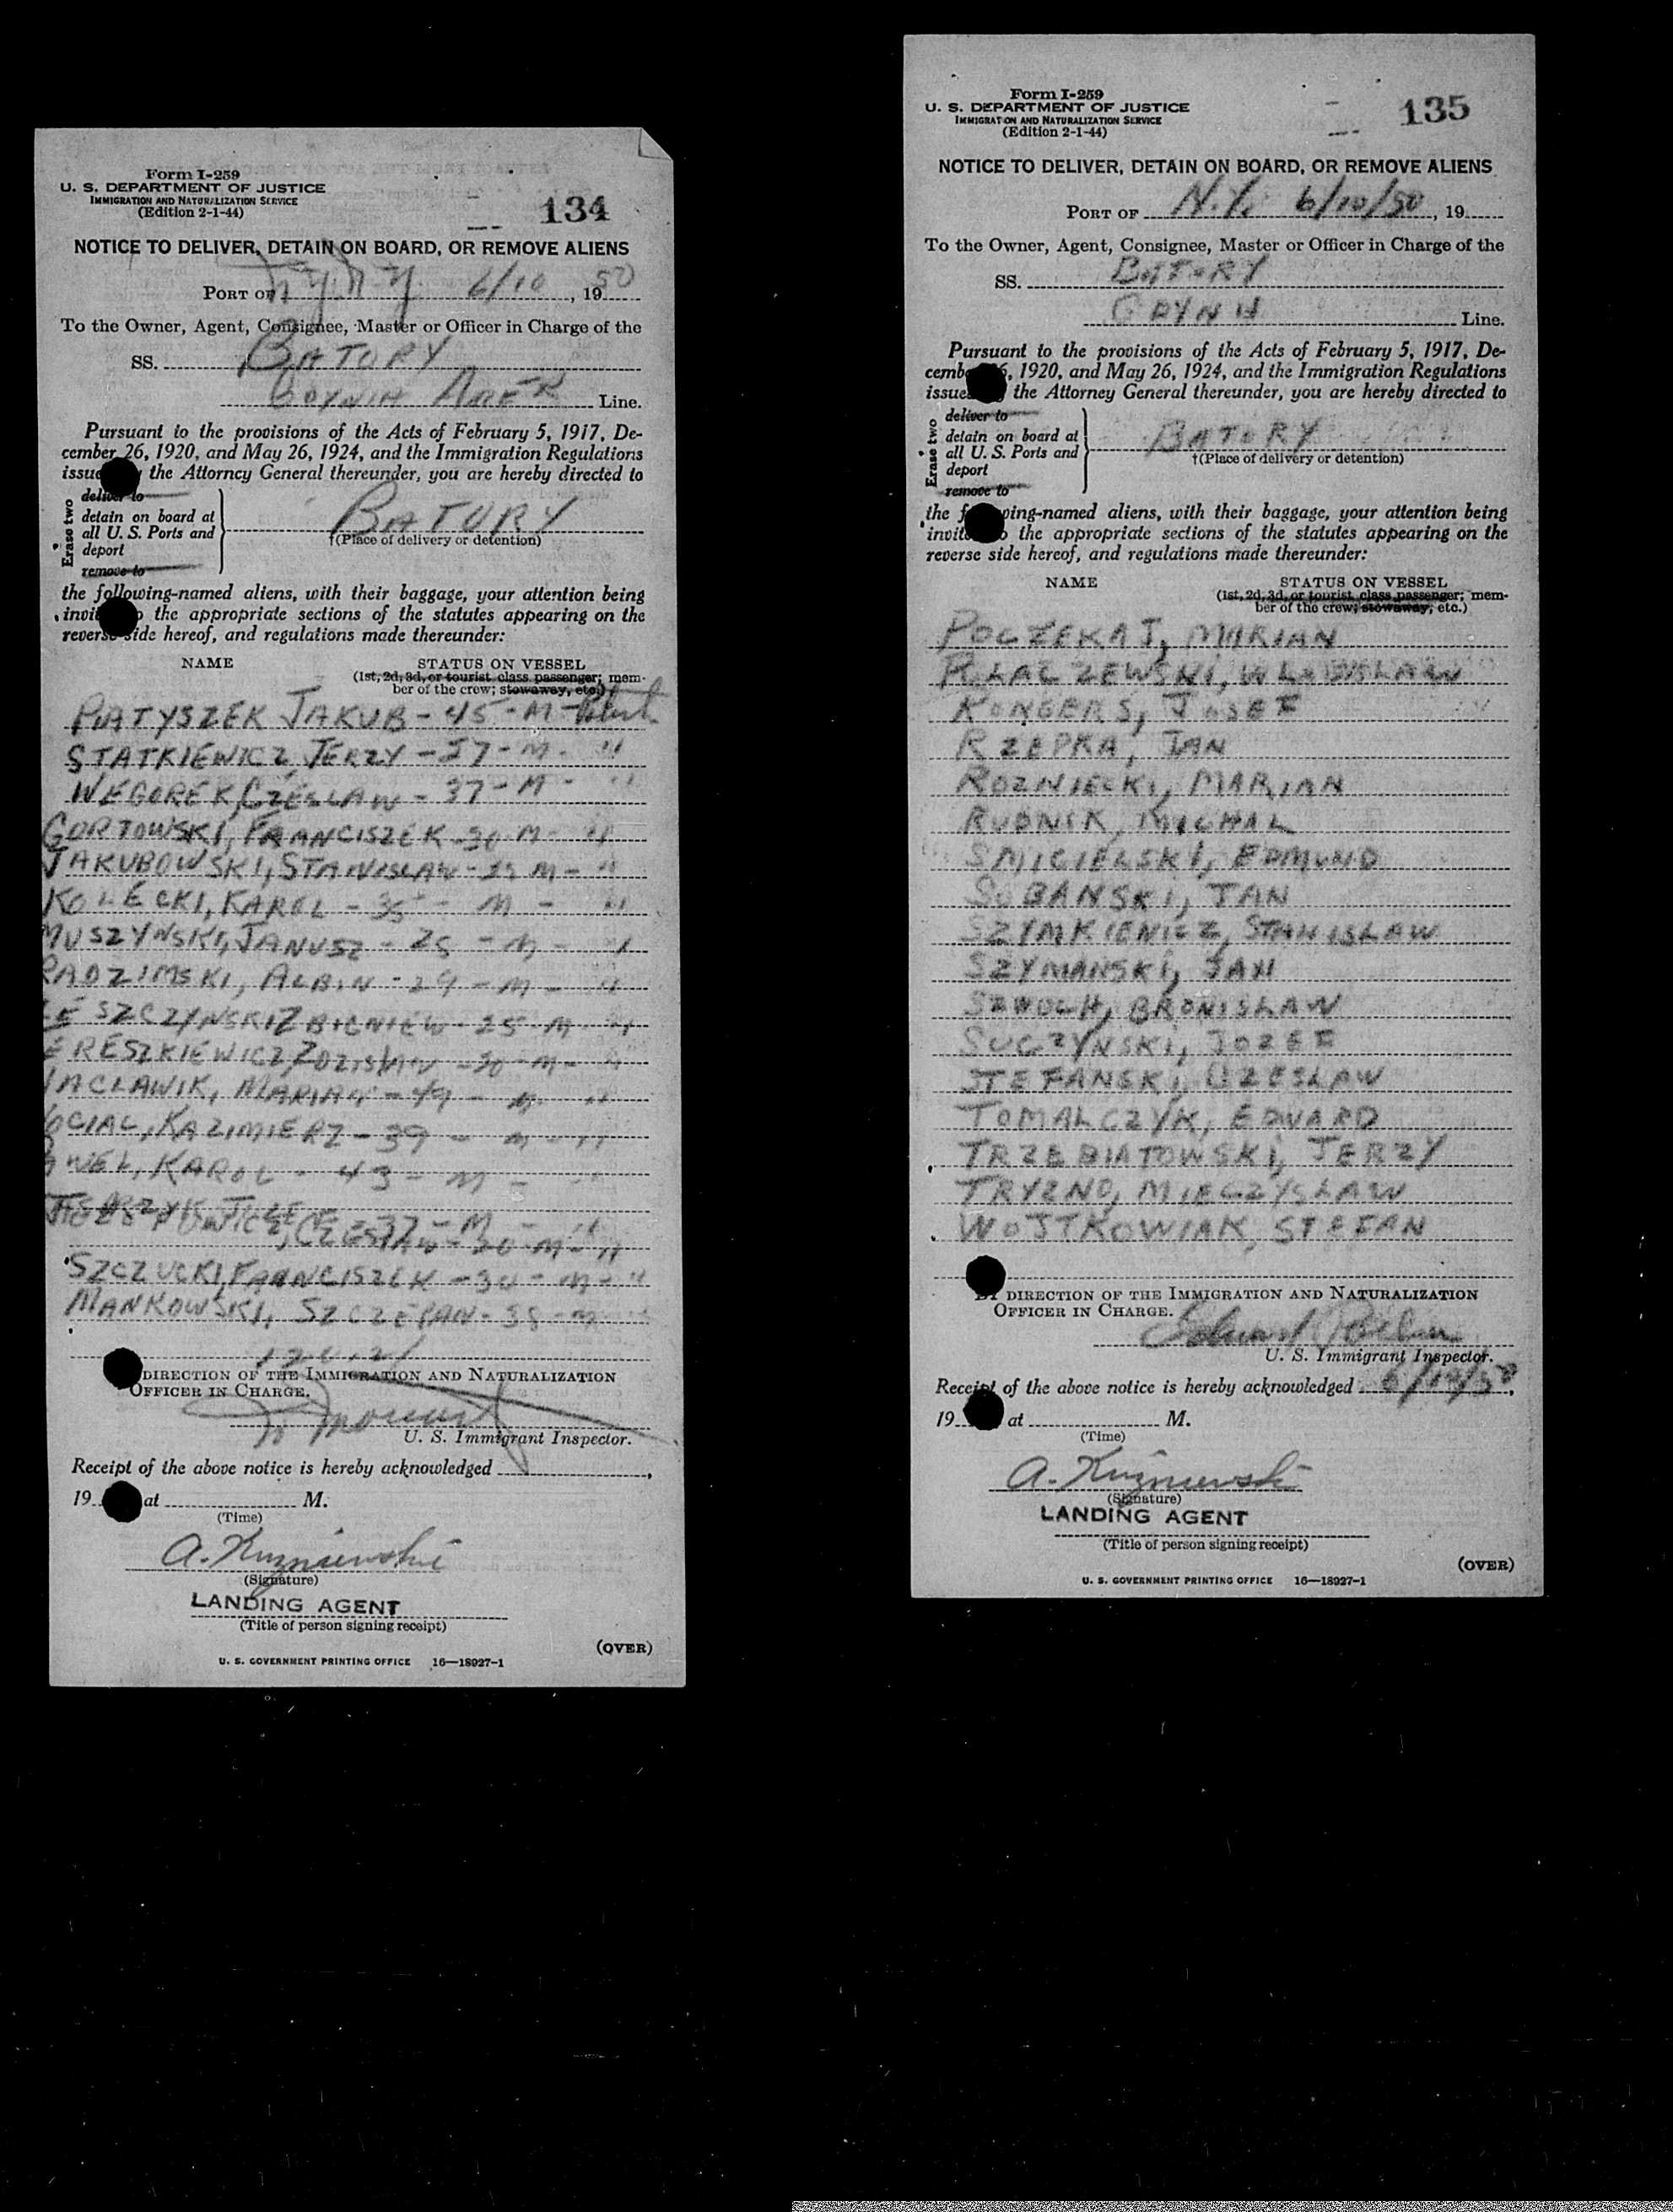 Form I-259
U. S. DEPARTMENT OF JUSTICE
IMMIGRATION AND NATURALIZATION SERVICE
(Edition 2-1-44)
134
NOTICE TO DELIVER, DETAIN ON BOARD, OR REMOVE ALIENS
PORT OF N.Y. N.Y. 6/10, 1950
To the Owner, Agent, Consignee, Master or Officer in Charge of the
SS. BATORY
GDYNIA AMER Line.
Pursuant to the provisions of the Acts of February 5, 1917, De-
cember 26, 1920, and May 26, 1924, and the Immigration Regulations
the Attorney General thereunder, you are hereby directed to
Erase two
deliver to
detain on board at
all U. S. Ports and
deport
remove to
BATORY
†(Place of delivery or detention)
the following-named aliens, with their baggage, your attention being
the appropriate sections of the statutes appearing on the
reverse side hereof, and regulations made thereunder:
NAME STATUS ON VESSEL
(1st, 2d, 3d, or tourist class passenger; mem-
ber of the crew; stowaway, etc.)
JAKUB - 45 - M - Polish
STATKIEWICZ, JERZY - 37 - M - "
WEGOREK, CZESLAW - 37 - M - "
GORTOWSKI, FRANCISZEK - 30 M - "
JAKUBOWSKI, STANISLAW - M - "
KOLECKI, KAROL - 35 - M - "
MUSZYNSKI, JANUSZ - 25 - M - "
RADZIMSKI, ALBIN - 29 - M - "
LESZCZYNSKI ZBIGNIEW - 25 - M - "
ERESZKIEWICZ ZDZISLAW - 30 - M - "
ACLAWIK, MARIAN - 49 - M - "
KAZIMIERZ - 39 - M - "
KAROL - 43 - M - "
37 - M - "
CZESLAW - 30 - M - "
SZCZUCKI, FRANCISZEK - 30 - M - "
MANKOWSKI, SZCZEPAN - 38 - M
DIRECTION OF THE IMMIGRATION AND NATURALIZATION
OFFICER IN CHARGE.
U. S. Immigrant Inspector.
Receipt of the above notice is hereby acknowledged
19 at M.
(Time)
A. Kuzniewski
(Signature)
LANDING AGENT
(Title of person signing receipt)
(OVER)
U. S. GOVERNMENT PRINTING OFFICE 16—18927-1
Form I-259
U. S. DEPARTMENT OF JUSTICE
IMMIGRATION AND NATURALIZATION SERVICE
(Edition 2-1-44)
135
NOTICE TO DELIVER, DETAIN ON BOARD, OR REMOVE ALIENS
PORT OF N.Y. 6/10/50, 19
To the Owner, Agent, Consignee, Master or Officer in Charge of the
SS. BATORY
Line.
Pursuant to the provisions of the Acts of February 5, 1917, De-
1920, and May 26, 1924, and the Immigration Regulations
the Attorney General thereunder, you are hereby directed to
Erase two
deliver to
detain on board at
all U. S. Ports and
deport
remove to
BATORY
†(Place of delivery or detention)
the aliens, with their baggage, your attention being
the appropriate sections of the statutes appearing on the
reverse side hereof, and regulations made thereunder:
NAME STATUS ON VESSEL
(1st, 2d, 3d, or tourist class passenger; mem-
ber of the crew; stowaway, etc.)
POCZEKAJ, MARIAN
WLADYSLAW
KONGERS, JOSEF
RZEPKA, JAN
ROZNIECKI, MARIAN
RUDNIK, MICHAL
SMIGIELSKI, EDMUND
SOBANSKI, JAN
SZYMKIEWICZ, STANISLAW
SZYMANSKI, JAN
BRONISLAW
SUCZYNSKI, JOZEF
STEFANSKI, CZESLAW
TOMALCZYK, EDWARD
TRZEBIATOWSKI, JERZY
TRYZNO, MIECZYSLAW
WOJTKOWIAK, STEFAN
BY DIRECTION OF THE IMMIGRATION AND NATURALIZATION
OFFICER IN CHARGE.
U. S. Immigrant Inspector.
Receipt of the above notice is hereby acknowledged 6/10/50,
19 at M.
(Time)
A. Kuzniewski
(Signature)
LANDING AGENT
(Title of person signing receipt)
(OVER)
U. S. GOVERNMENT PRINTING OFFICE 16—18927-1